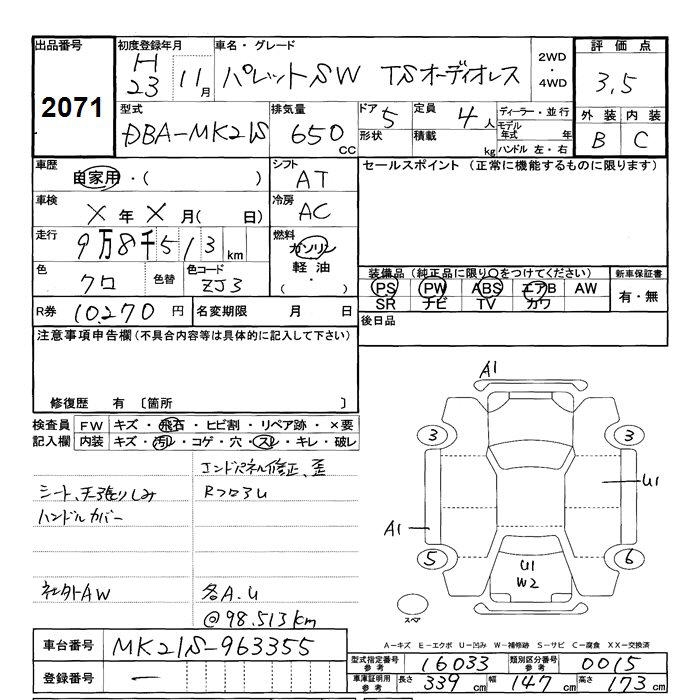 出品番号 2071
初度登録年月 H23 11月
車名・グレード パレットSW TSオーディオレス
2WD・4WD
評価点 3,5
外装 B 内装 C
型式 DBA-MK21S
排気量 650 CC
ドア 5 形状
定員 4人 積載 kg
ディーラー・並行
モデル年式 年
ハンドル 左・右
車歴 自家用・( )
シフト AT
セールスポイント (正常に機能するものに限ります)
車検 X年X月( 日)
冷房 AC
走行 9万8千513km
燃料 ガソリン 軽油 ( ・ )
色 クロ 色替 色コード ZJ3
装備品 (純正品に限り○をつけてください)
PS PW ABS エアB AW
SR ナビ TV カワ
新車保証書 有・無
R券 10,270円 名変期限 月 日
後日品
注意事項申告欄 (不具合内容等は具体的に記入して下さい)
修復歴 有 〔箇所 〕
検査員記入欄
FW キズ・飛石・ヒビ割・リペア跡・×要
内装 キズ・汚レ・コゲ・穴・スレ・キレ・破レ
エンドパネル修正、歪
シート、天張りしみ RフロアU
ハンドルカバー
社外AW 各A.U
@98.513km
A1
3 3
U1
A1
5 6
U1
W2
スペア
A－キズ E－エクボ U－凹み W－補修跡 S－サビ C－腐食 XX－交換済
車台番号 MK21S-963355
登録番号 —
型式指定番号参考 16033 類別区分番号参考 0015
車庫証明用参考 長さ 339cm 幅 147cm 高さ 173cm